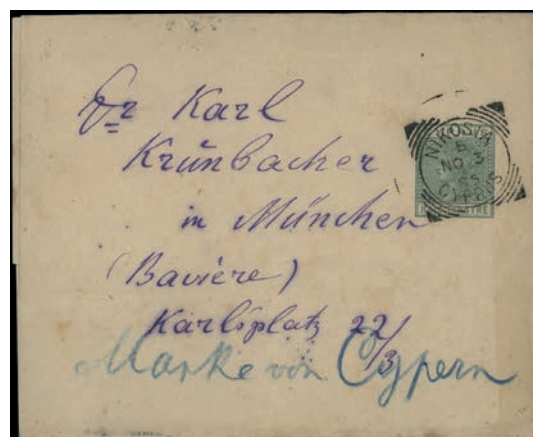 Dr Karl
Krünbacher
in München
(Bavière)
Karlsplatz 22/3
Marke von Cypern
NIKOSIA
NO 3
CYPRUS